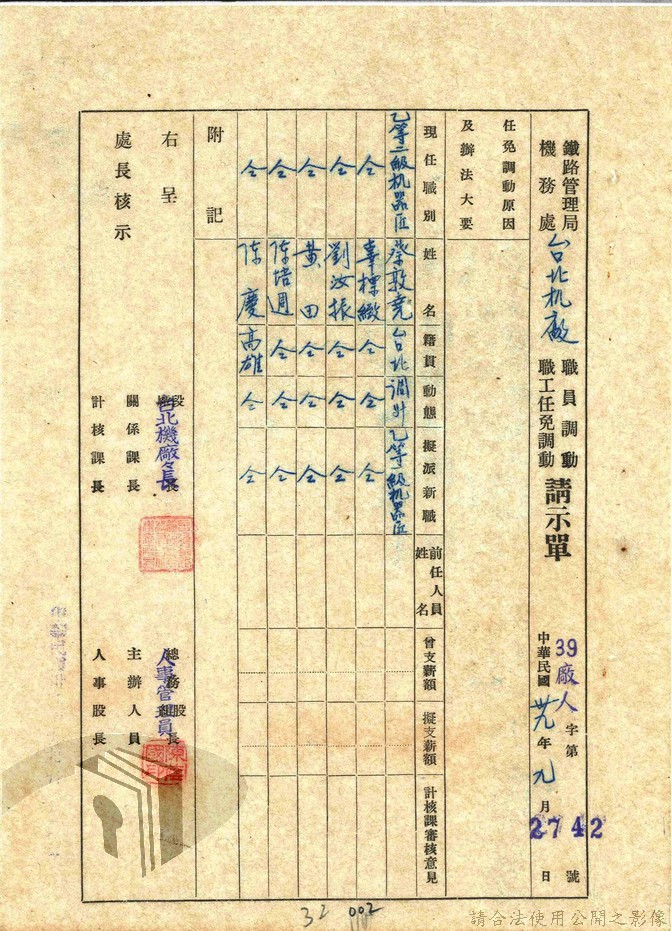 鐵路管理局
機務處
台北机廠
職員調動
職工任免調動
請示單
39廠人字第2742號
中華民國卅九年九月 日
任免調動原因
及辦法大要
現任職別 姓名 籍貫 動態 擬派新職 前任人員姓名 曾支薪額 擬支薪額 計核課審核意見
乙等二級机器匠 蔡敦堯 台北 調升 乙等一級机器匠
仝 辜標緻 仝 仝 仝
仝 劉汝振 仝 仝 仝
仝 黄田 仝 仝 仝
仝 陳培週 仝 仝 仝
仝 陳慶 高雄 仝 仝
附記
右呈
處長核示
段長
台北機廠々長
關係課長
計核課長
總務股長
人事管理員
主辦人員
人事股長
32 002
請合法使用公開之影像